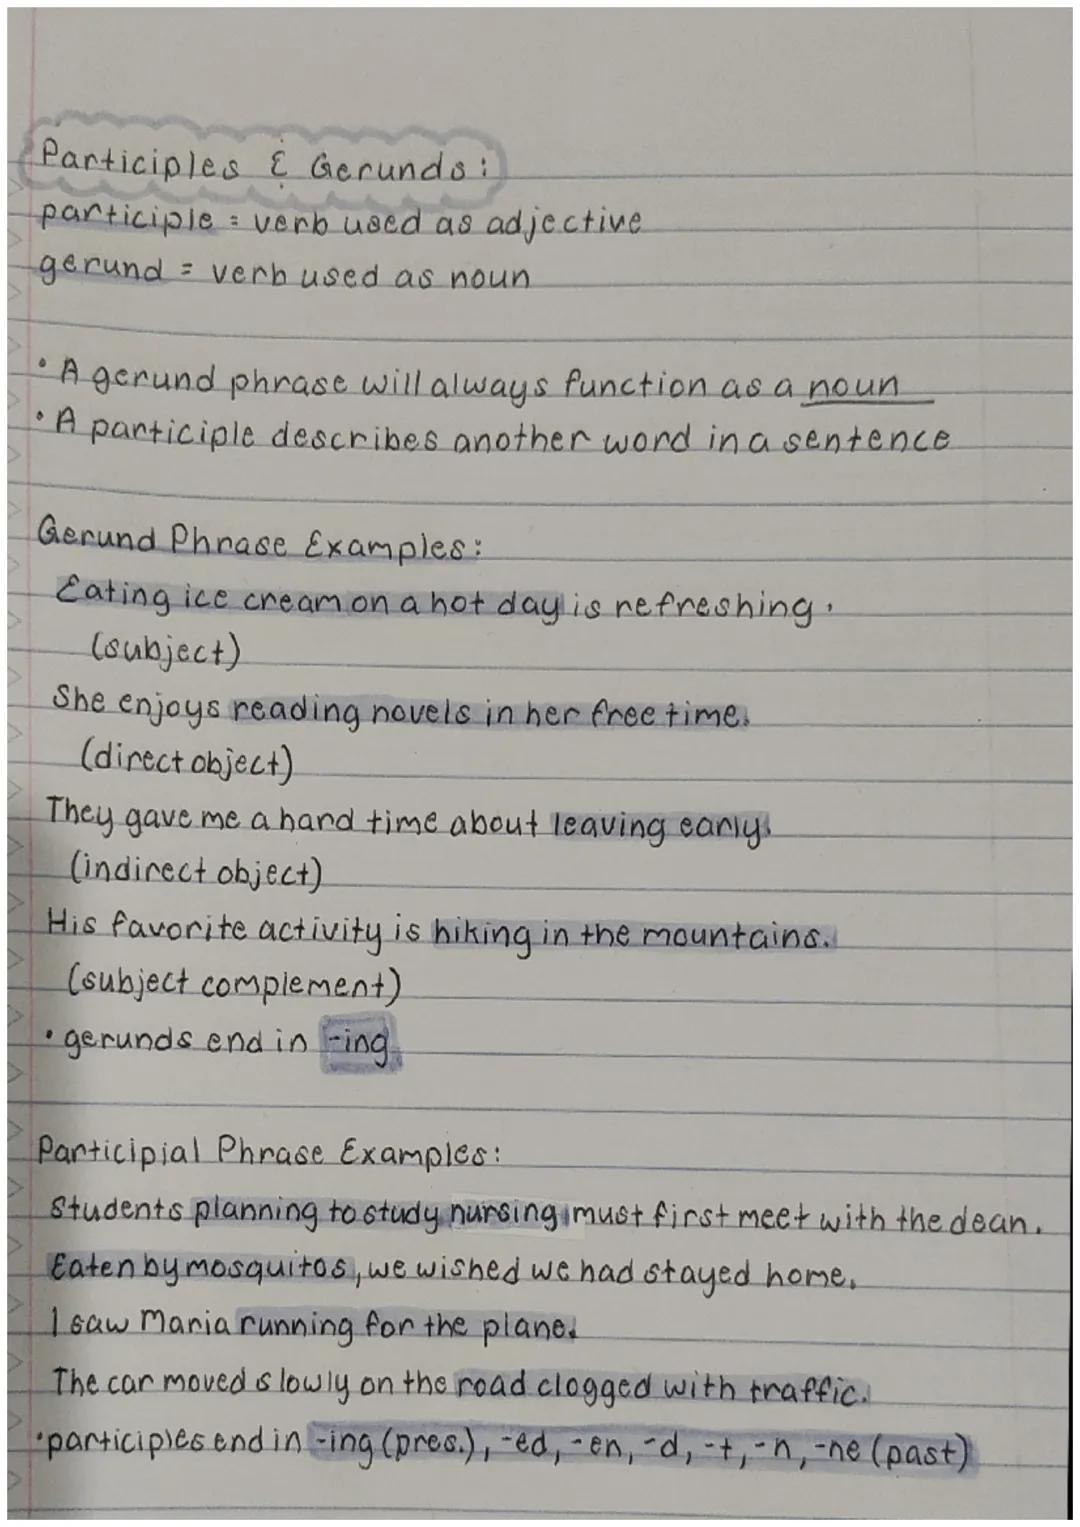 Participles & Gerunds:
participle = verb used as adjective
gerund = verb used as noun
• A gerund phrase will always function as a noun
• A participle describes another word in a sentence
Gerund Phrase Examples:
Eating ice cream on a hot day is refreshing.
(subject)
She enjoys reading novels in her free time.
(direct object)
They gave me a hard time about leaving early.
(indirect object)
His favorite activity is hiking in the mountains.
(subject complement)
• gerunds end in -ing
Participial Phrase Examples:
Students planning to study nursing must first meet with the dean.
Eaten by mosquitos, we wished we had stayed home.
I saw Maria running for the plane.
The car moved slowly on the road clogged with traffic.
• participles end in -ing (pres.), -ed, -en, -d, -t, -n, -ne (past)